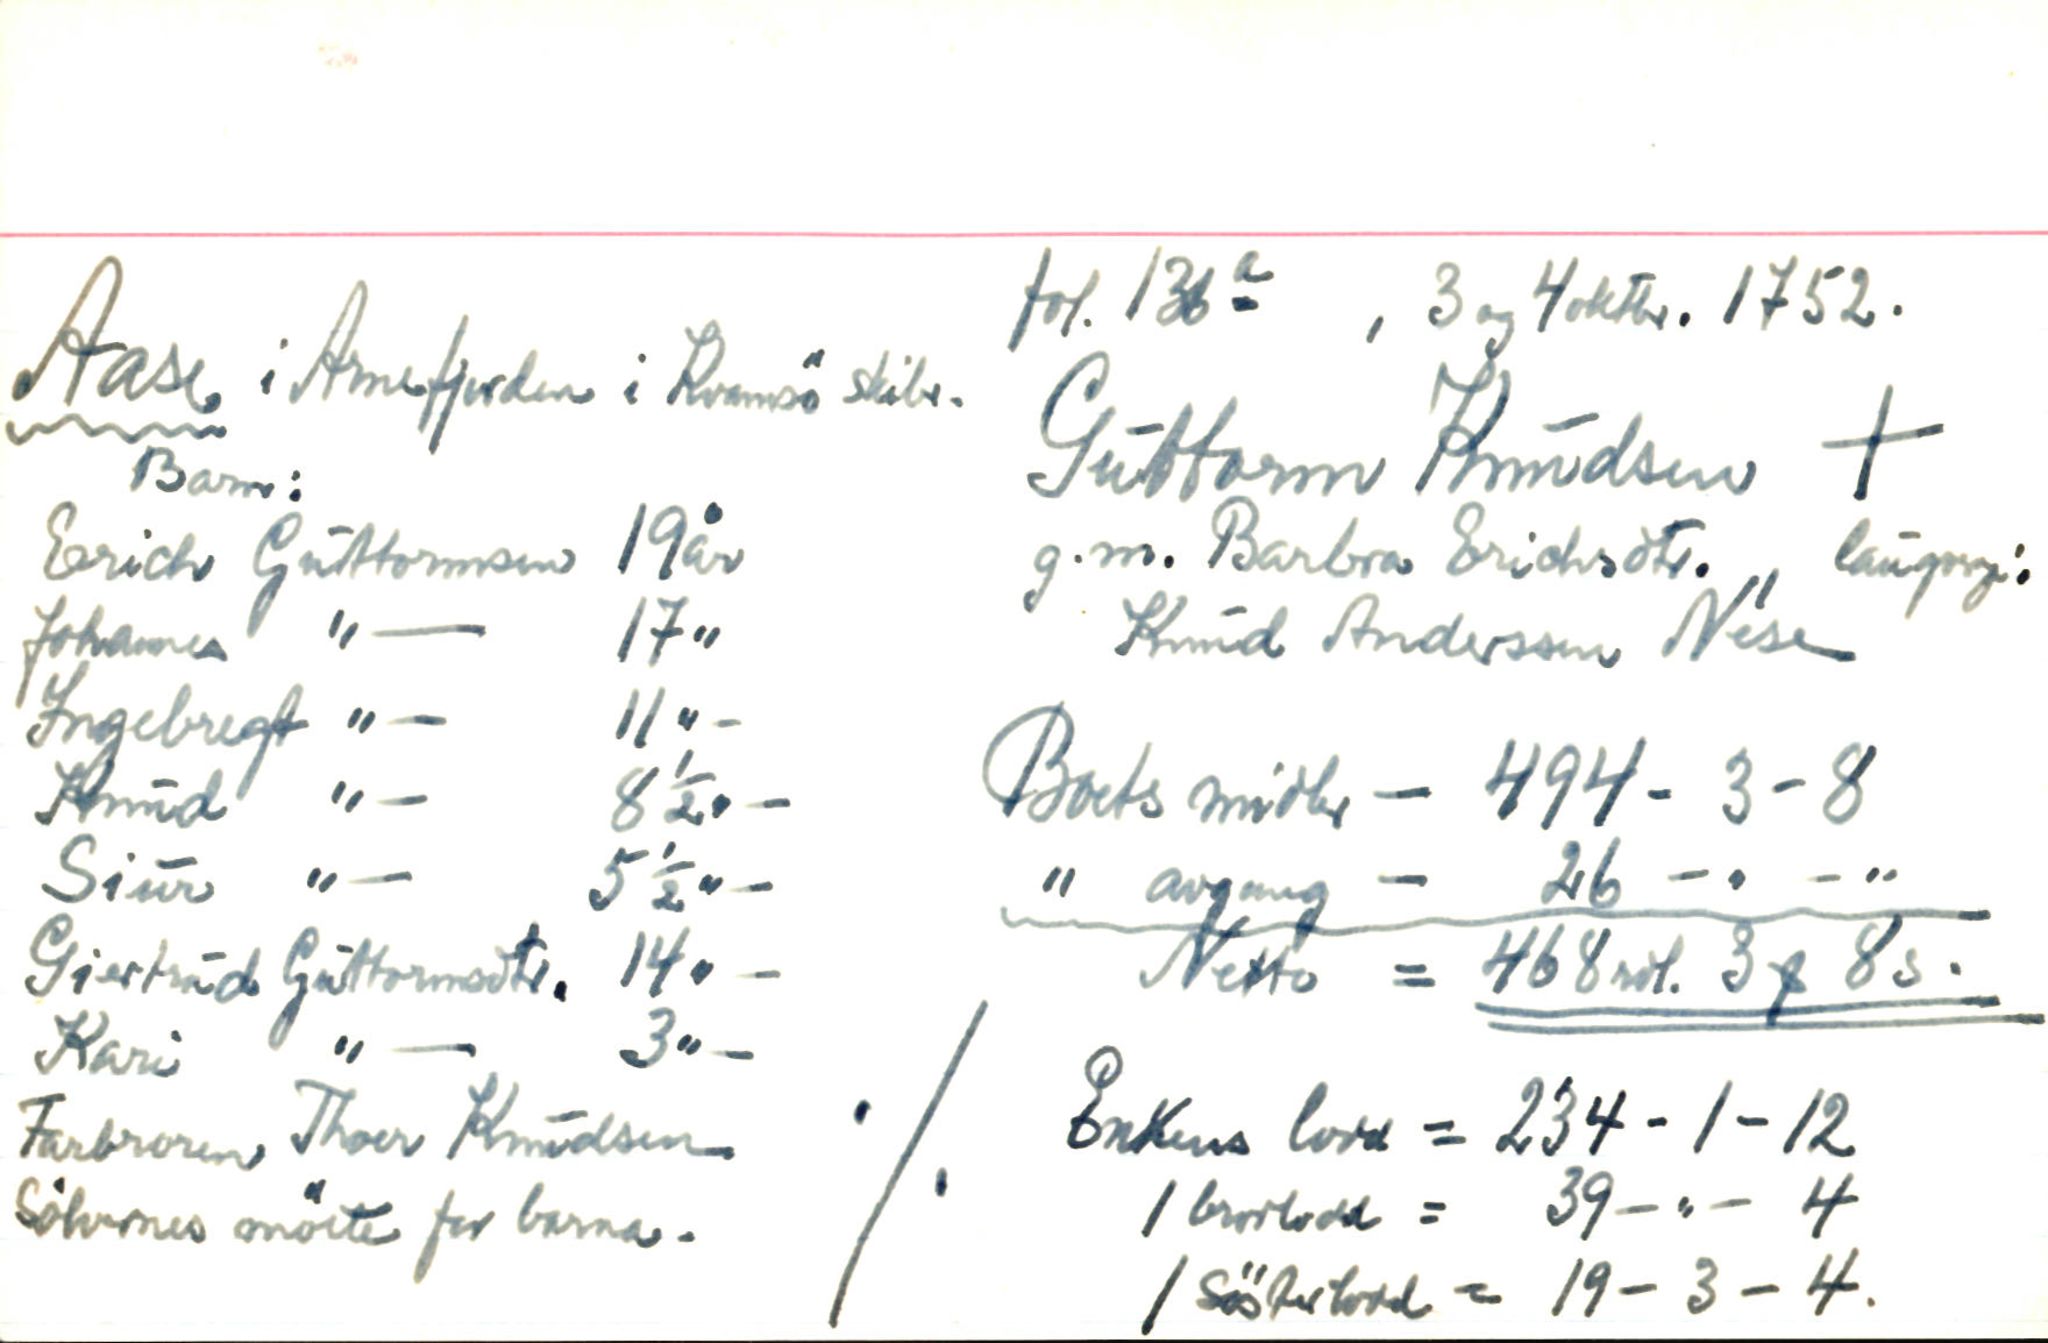 fol. 136a, 3 og 4 oktbr. 1752.
Aase i Arnefjorden i Kvamsö skibr.
Guttorm Knudsen +
g.m. Barbra Erichsdtr., laugvrg:
Knud Anderssen Nese
Barn:
Erich Guttormsen 19 år
Johannes "— 17 "
Ingebregt "— 11 " -
Knud "— 8 1/2 " -
Siur "— 5 1/2 " -
Giertrud Guttormsdtr. 14 " -
Kari "— 3 " -
Farbroren Thoer Knudsen
Sölvernes möcte for barna.
Boets midler — 494 - 3 - 8
" avgang — 26 - " - "
Netto = 468 rdl. 3 ƶ 8 s.
Enkens lodd = 234 - 1 - 12
1 brorlodd = 39 - " - 4
1 Sösterlodd = 19 - 3 - 4.